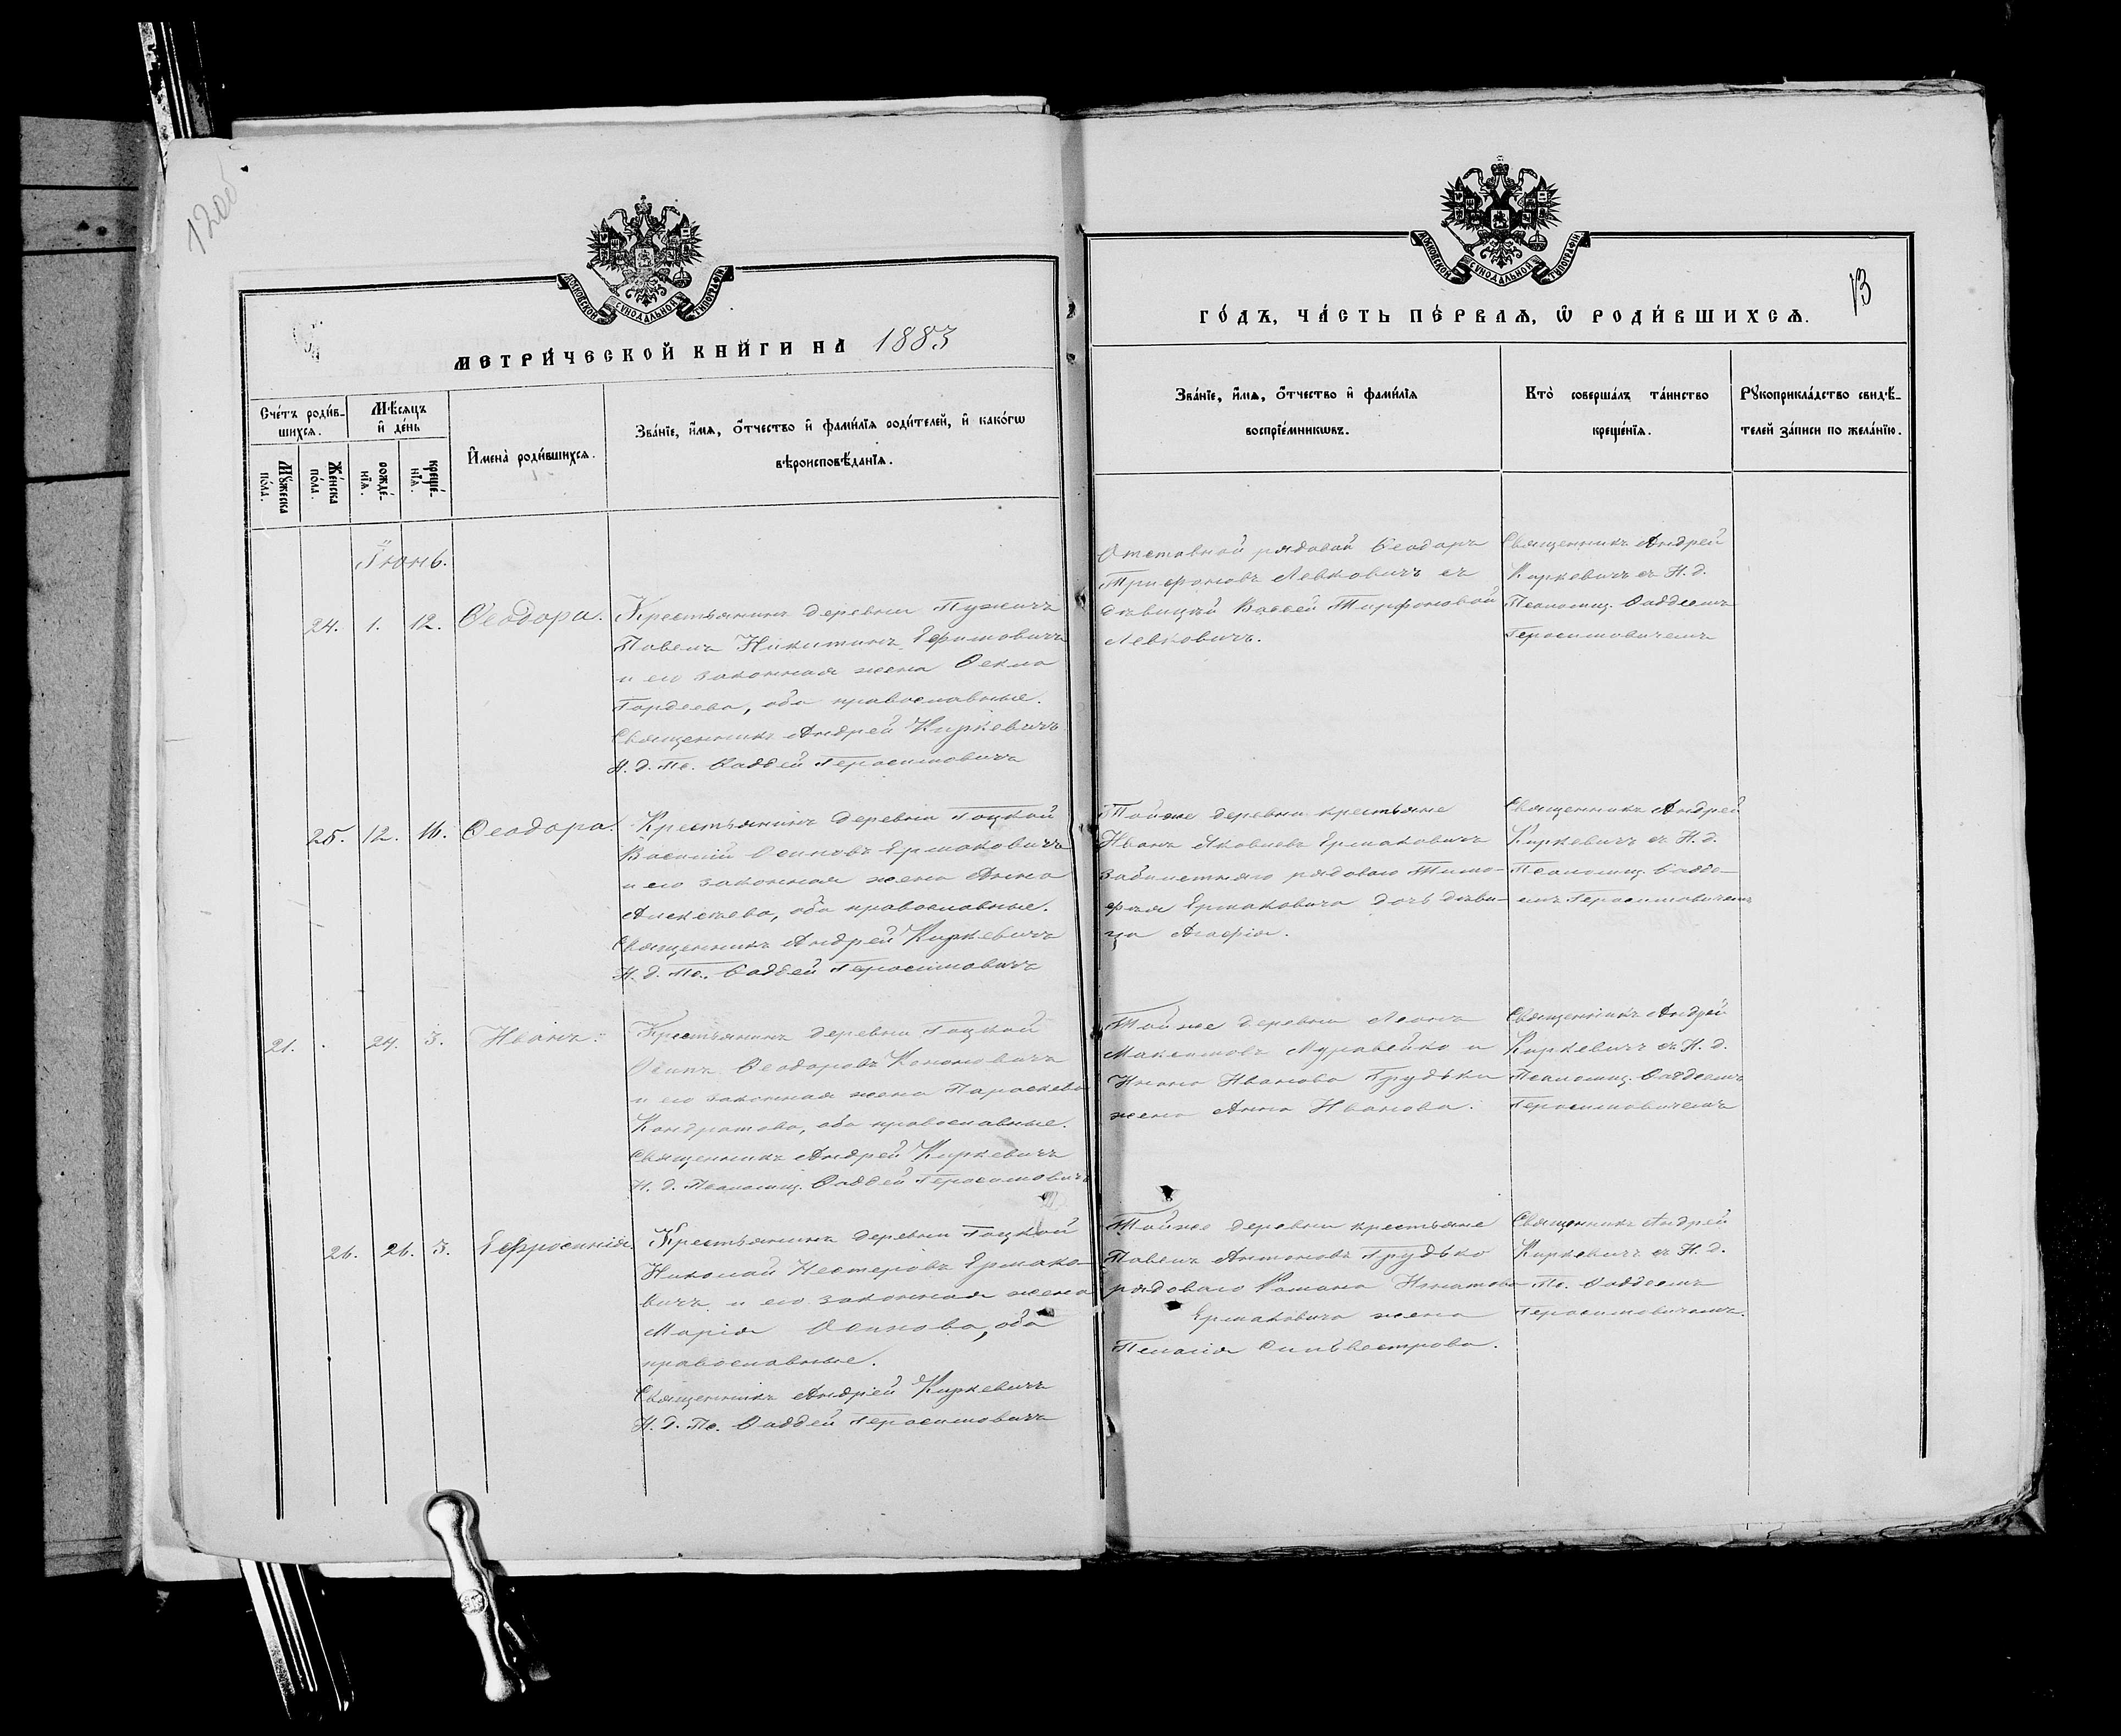 120об
МОСКОВСКОЙ СУНОДАЛЬНОЙ ТИПОГРАФІИ
МЕТРИ́ЧЕСКОЙ КНИ́ГИ НА 1883
Сче́тъ роди́в-
шихся.
Мѣ́сяцъ
и҆ де́нь
Мꙋ́жеска
по́ла.
Же́нска
по́ла.
рожде́-
нїѧ.
креще́-
нїѧ.
И҆мена̀ роди́вшихсѧ.
Зва́нїе, и҆́мѧ, ѻ҆́тчество и҆ фами́лїѧ роди́телей, и҆ како́гѡ
вѣроисповѣ́данїѧ.
Іюнь.
24. 1. 12. Ѳеодора.
Крестьянинъ деревни
Павелъ Никитинъ Ефимовичъ
и его законная жена Ѳекла
Гордеева, оба православные.
Священникъ Андрей Киркевичъ
И. д. Пс. Ѳаддей Герасимовичъ
25. 12. 16. Ѳеодора.
Крестьянинъ деревни Гоцкой
Василій Осиповъ Ермаковичъ
и его законная жена Анна
Алексѣева, оба православные.
Священникъ Андрей Киркевичъ
И. д. Пс. Ѳаддей Герасимовичъ
21. 24. 3. Иванъ.
Крестьянинъ деревни Гоцкой
Осипъ Ѳеодоровъ Кононовичъ
и его законная жена Параскева
Кондратова, оба православные.
Священникъ Андрей Киркевичъ
И. д. Псаломщ. Ѳаддей Герасимовичъ
26. 26. 3. Ефросинія.
Крестьянинъ деревни Гоцкой
Николай Нестеровъ Ермако-
вичъ и его законная жена
Марія Осипова, оба
православные.
Священникъ Андрей Киркевичъ
И. д. Пс. Ѳаддей Герасимовичъ
МОСКОВСКОЙ СУНОДАЛЬНОЙ ТИПОГРАФІИ
ГО́ДЪ, ЧА́СТЬ ПЕ́РВАѦ, Ѡ҆ РОДИ́ВШИХСѦ.
13
Зва́нїе, и҆́мѧ, ѻ҆́тчество и҆ фами́лїѧ
воспрїе́мникѡвъ.
Кто̀ соверша́лъ та́инство
креще́нїѧ.
Рꙋкоприкла́дство свидѣ́-
телей за́писи по жела́нїю.
Отставной рядовой Ѳеодоръ
Трифоновъ Левковичъ съ
дѣвицей Трифоновой
Левковичъ.
Священникъ Андрей
Киркевичъ съ И. д.
Псаломщ. Ѳаддеемъ
Герасимовичемъ
Тойже деревни крестьяне
Иванъ Яковлевъ Ермаковичъ
рядоваго Тимо-
фея Ермаковича дочь дѣви-
ца Агафія.
Священникъ Андрей
Киркевичъ съ И. д.
Псаломщ. Ѳадде-
емъ Герасимовичемъ
Тойже деревни Леонъ
Максимовъ Муравейко и
Ивана Грудьки
жена Анна Иванова.
Священникъ Андрей
Киркевичъ съ И. д.
Псаломщ. Ѳаддеемъ
Герасимовичемъ
Тойже деревни крестьяне
Павелъ Антоновъ Грудько
рядоваго Романа Игнатова
Ермаковича жена
Пелагія Сильвестрова.
Священникъ Андрей
Киркевичъ съ И. д.
Пс. Ѳаддеемъ
Герасимовичемъ.